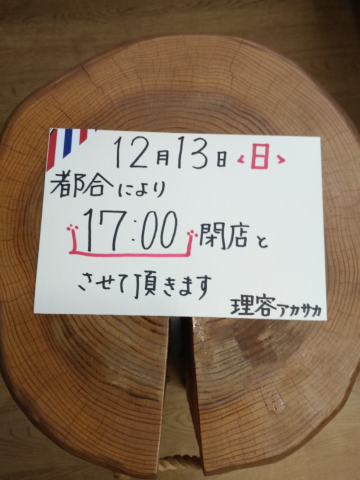 12月13日<日>
都合により
17:00閉店と
させて頂きます
理容アカサカ